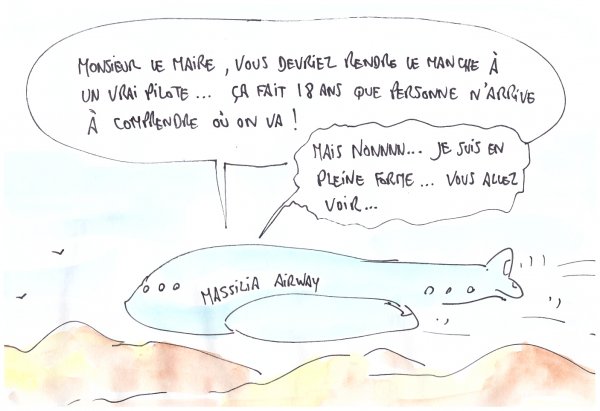 MONSIEUR LE MAIRE, VOUS DEVRIEZ RENDRE LE MANCHE À
UN VRAI PILOTE... ÇA FAIT 18 ANS QUE PERSONNE N'ARRIVE
À COMPRENDRE OÙ ON VA !
MAIS NONNNN... JE SUIS EN
PLEINE FORME... VOUS ALLEZ
VOIR...
MASSILIA AIRWAY